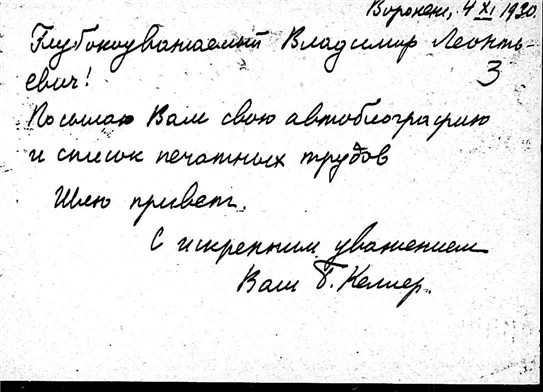 Воронеж, 4 XI 1930.
Глубокоуважаемый Владимир Леонть-
евич!
3
Посылаю Вам свою автобиографию
и список печатных трудов
Шлю привет.
С искренним уважением
Ваш Б. Келлер.